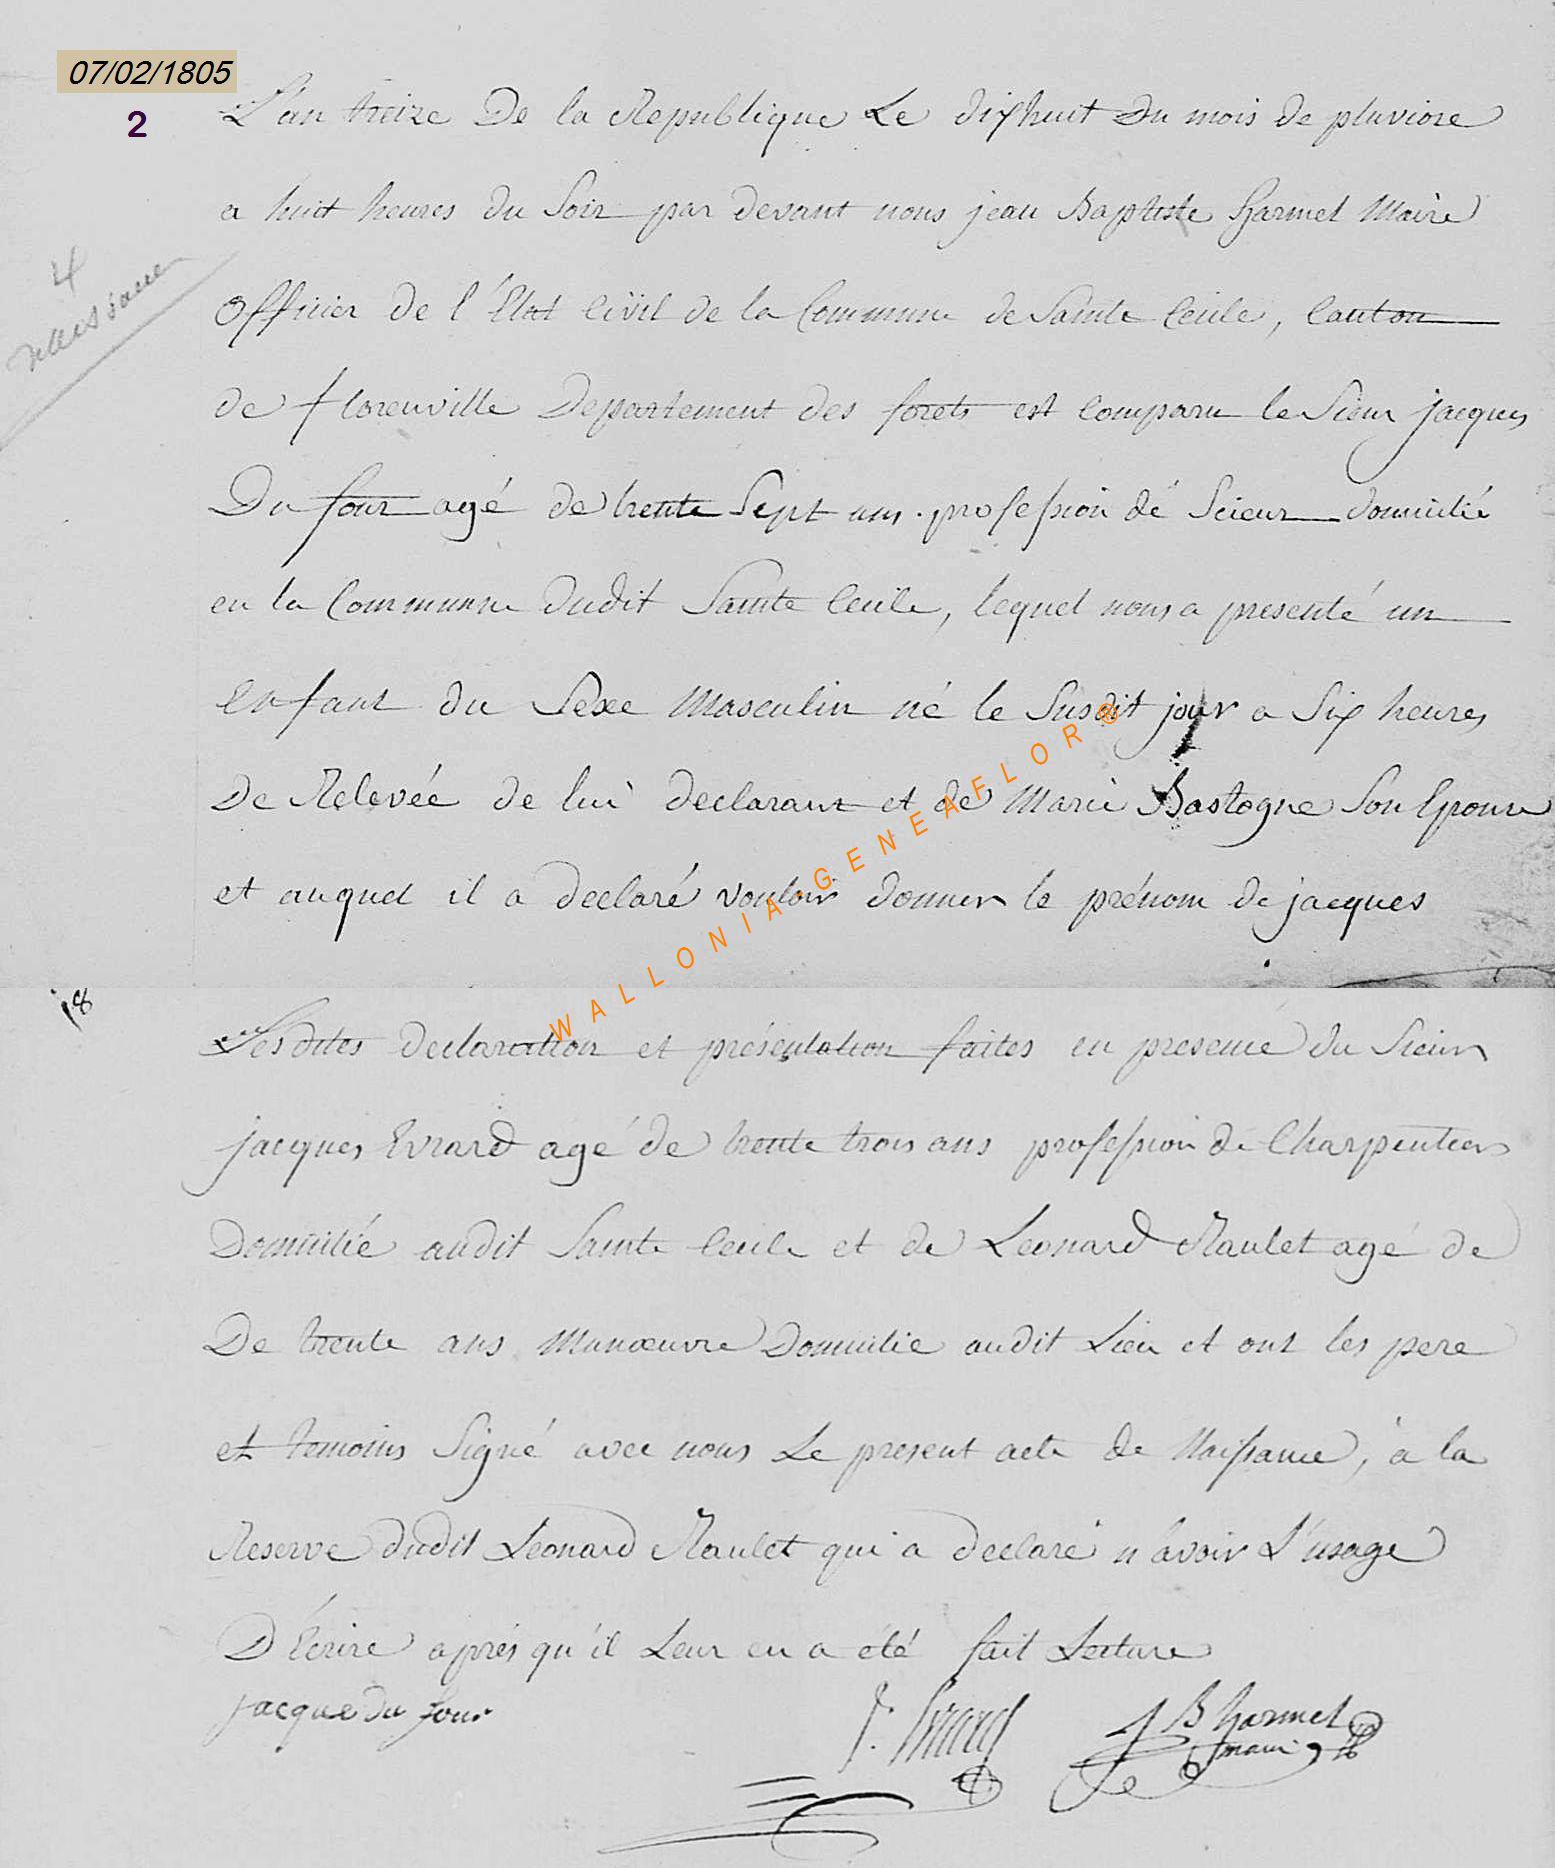 07/02/1805
2
L'an treize De la Republique Le dixhuit Du mois de pluviose
a huit heures du Soir par devant nous jean Baptiste Harmel Maire
4
naissance
Officier de l'Etat Civil de la Commune de Sainte Cecile, Canton
de florenville Departement des forets est comparu le Sieur jacques
Du four agé de trente Sept ans profession dé Scieur domicilié
en la Commune dudit Sainte Cecile, lequel nous a presenté un
Enfant du Sexe Masculin né le Susdit jour a Six heures
De Relevée de lui declarant et de Marie Bastogne Son Epouse
et auquel il a declaré vouloir donner le prénom de jacques
WALLONIA-GENEAFLOR®
18
Lesdites declaration et présentation faites en presence du Sieur
jacques Evrard agé de trente trois ans profession de Charpentier
Domicilié audit Sainte Cecile et de Leonard Raulet agé de
De trente ans Manœuvre Domicilie audit Lieu et ont les pere
et temoins Signé avec nous Le present acte de Naissance, à la
Reserve dudit Leonard Raulet qui a declaré n'avoir L'usage
D'Ecrire aprés qu'il Leur en a été fait Lecture
jacque du four
J. Evrard
J B Harmel
maire